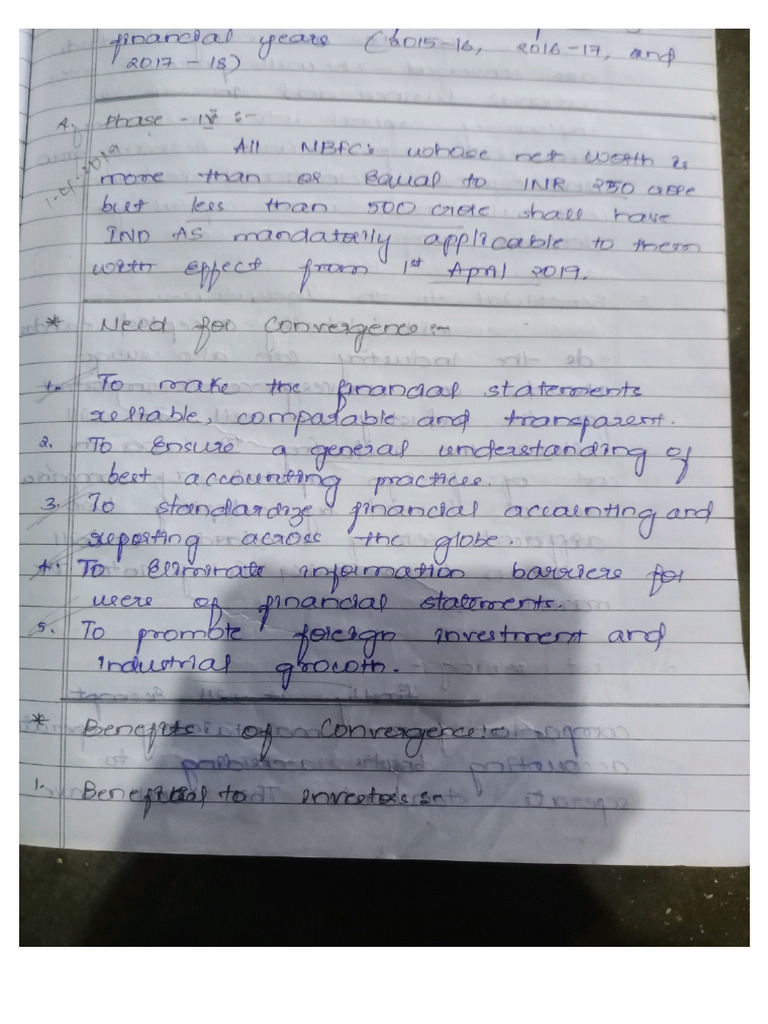 financial years (2015-16, 2016-17, and
2017-18)
4. Phase - IV :-
1-01-2019
All NBFC's whose net worth is
more than or Equal to INR 250 crore
but less than 500 crore shall have
IND AS mandatorily applicable to them
with effect from 1st April 2019.
* Need for Convergence :-
1. To make the financial statements
reliable, comparable and transparent.
2. To Ensure a general understanding of
best accounting practices.
3. To standardize financial accounting and
reporting across the globe.
4. To Eliminate information barriers for
users of financial statements.
5. To promote foreign investment and
industrial growth.
* Benefits of Convergence :-
1. Beneficial to investors :-